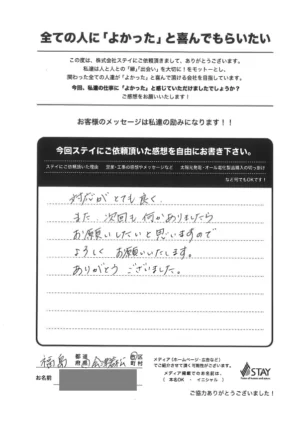 全ての人に「よかった」と喜んでもらいたい
この度は、株式会社ステイにご依頼頂きまして、ありがとうございます。
私達は人と人との「縁」「出会い」を大切に！をモットーとし、
関わった全ての人達が「よかった」と喜んで頂ける会社を目指しています。
今回、私達の仕事に「よかった」と感じていただけましたでしょうか？
ご感想をお願いいたします！
お客様のメッセージは私達の励みになります！！
今回ステイにご依頼頂いた感想を自由にお書き下さい。
ステイにご依頼頂いた理由
営業・工事の感想やメッセージなど
太陽光発電・オール電化製品購入の切っ掛け
など何でもOKです！
対応がとても良く、
また、次回も何かありましたら
お願いしたいと思いますので
よろしくお願いいたします。
ありがとうございました。
福島 都道府県 会津若松 市区町村
お名前
メディア（ホームページ・広告など）
でご紹介させて頂く可能性がございます。
メディア掲載でのお名前は、
（ 本名OK ・ イニシャル ）
STAY
ご協力ありがとうございました！